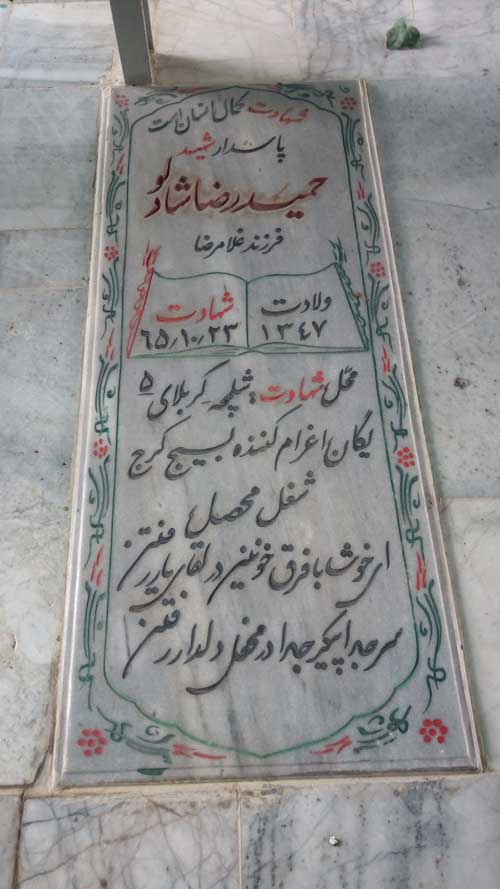 شهادت کمال انسان است
پاسدار شهید
حمیدرضا شادلو
فرزند غلامرضا
ولادت شهادت
۱۳۴۷ ۶۵/۱۰/۲۳
محل شهادت: شلمچه کربلای ۵
یگان اعزام کننده بسیج کرج
شغل محصل
ای خوشا با فرق خونین در لقای یار رفتن
سر جدا پیکر جدا در محفل دلدار رفتن